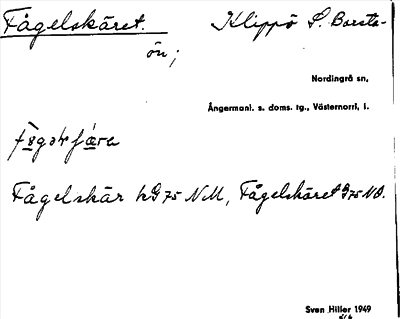 Fågelskäret. Klippö S. Borsta-
ön;
Nordingrå sn,
Ångermanl. s. doms. tg., Västernorrl. l.
Fågelskär hG 75 NM, Fågelskäret G 75 NO.
Sven Hiller 1949